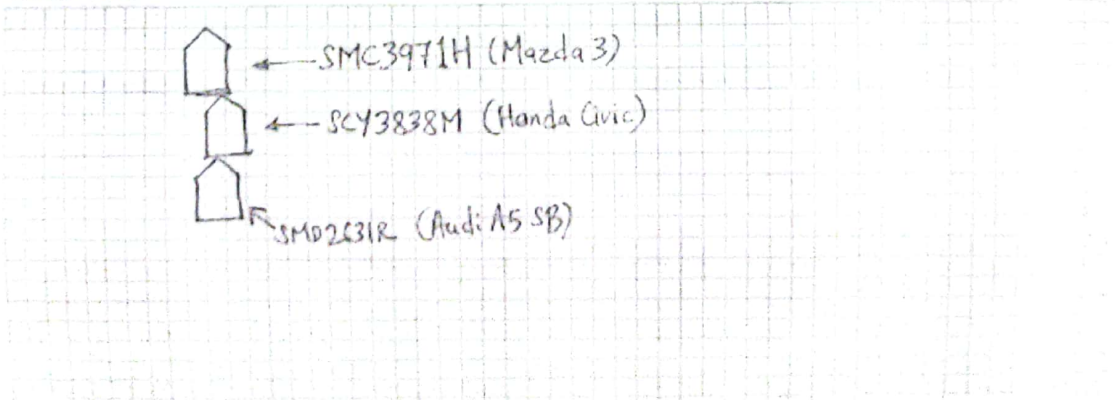 SMC3971H (Mazda 3)
SCY3838M (Honda Civic)
SMD2631R (Audi A5 SB)